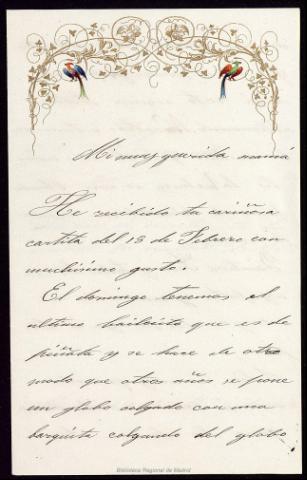 Mi muy querida mamá
He recibido tu cariñosa
cartita del 13 de Febrero con
muchísimo gusto.
El domingo tenemos el
ultimo bailecito que es de
piñata y se hace de otro
modo que otros años se pone
un globo colgado con una
barquita colgando del globo
Biblioteca Regional de Madrid